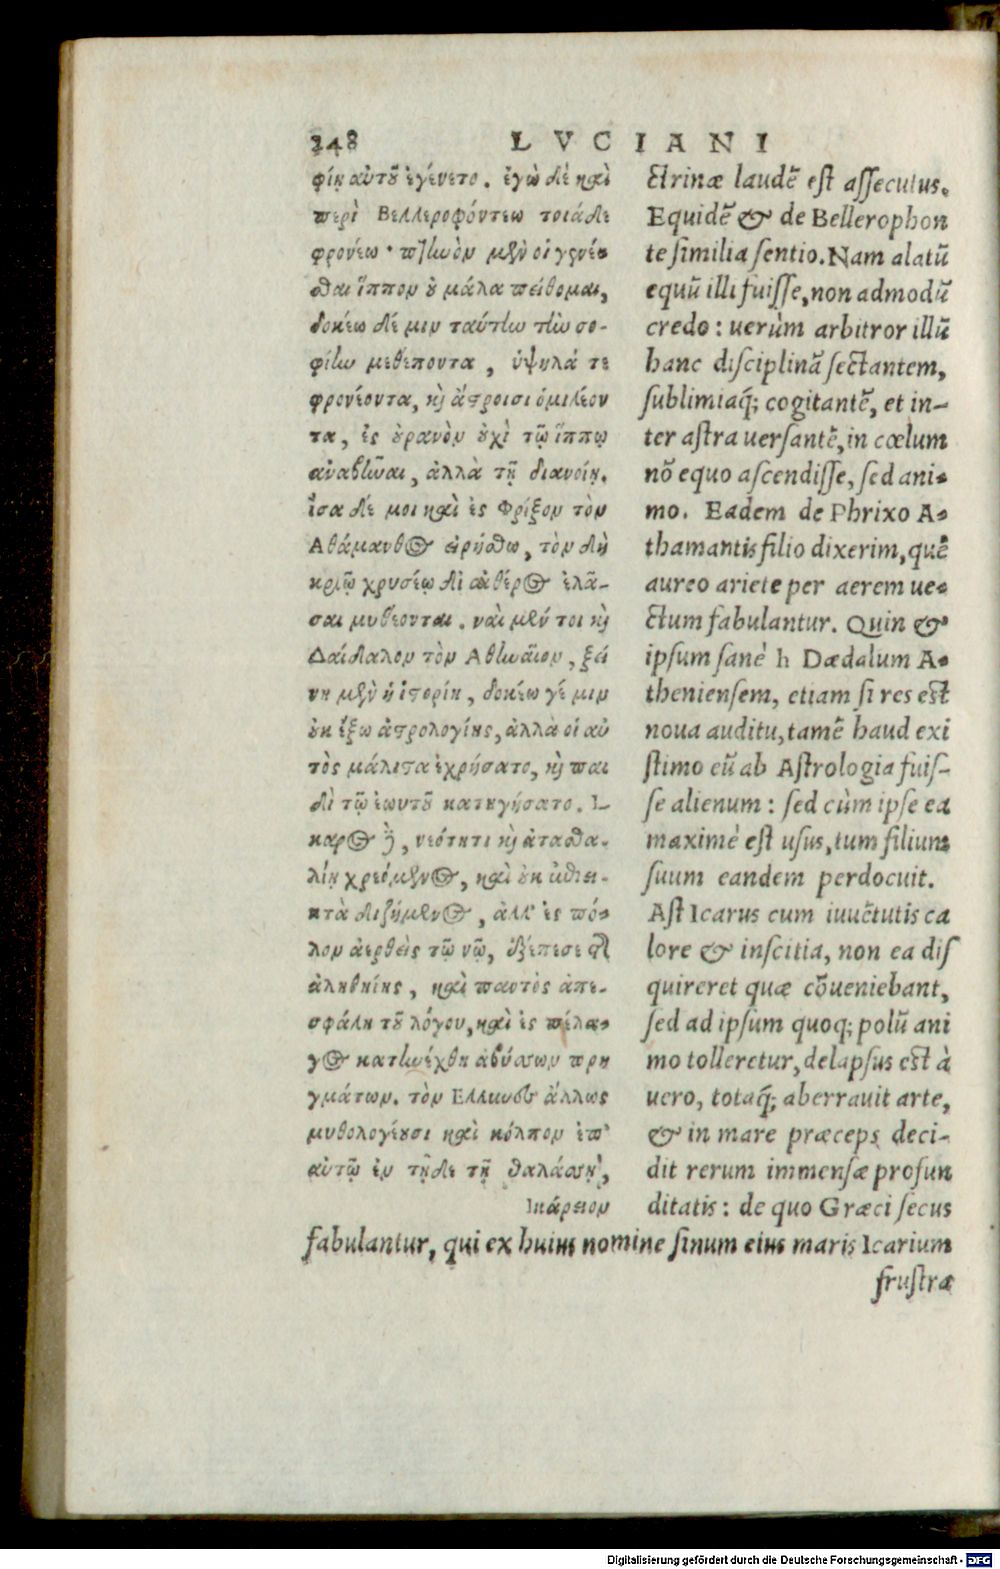 248 LVCIANI
φίη αὐτοῦ ἐγένετο. ἐγὼ δὲ καὶ
περὶ Βελλεροφόντεω τοιάδε
φρονέω· πτηνὸν μὲν οἱ γενέ-
σθαι ἵππον οὐ μάλα πείθομαι,
δοκέω δέ μιν ταύτην τὴν σο-
φίην μεθέποντα, ὑψηλά τε
φρονέοντα, καὶ ἄστροισι ὁμιλέον
τα, ἐς οὐρανὸν οὐχὶ τῷ ἵππῳ
ἀναβῆναι, ἀλλὰ τῇ διανοίῃ.
ἴσα δέ μοι καὶ ἐς Φρίξον τὸν
Αθάμανθος εἰρήσθω, τὸν δὴ
κριῷ χρυσέῳ δι αἰθέρος ἐλᾶ-
σαι μυθέονται. ναὶ μέν τοι καὶ
Δαίδαλον τὸν Αθηναῖον, ξεί
νη μὲν ἡ ἱστορίη, δοκέω γέ μιν
οὐκ ἔξω ἀστρολογίης, ἀλλὰ οἱ αὐ
τὸς μάλιστα ἐχρήσατο, καὶ παι
δὶ τῷ ἑωυτοῦ κατηγήσατο. Ι-
καρος δὲ, νεότητι καὶ ἀτασθα-
λίῃ χρεόμενος, καὶ οὐκ
κτὰ διζήμενος, ἀλλ' ἐς πό-
λον ἀερθεὶς τῷ νῷ, ἐξέπεσε τῆς
ἀληθηίης, καὶ παντὸς ἀπε-
σφάλη τοῦ λόγου, καὶ ἐς πέλα-
γος κατηνέχθη ἀβύσσων πρη
γμάτων. τὸν Ελληνες ἄλλως
μυθολογέουσι καὶ κόλπον ἐπ'
αὐτῷ ἐν τῇδε τῇ θαλάσσῃ,
Ικάρειον
ctrinæ laudẽ est assecutus.
Equidẽ & de Bellerophon
te similia sentio. Nam alatũ
equũ illi fuisse, non admodũ
credo: uerùm arbitror illũ
hanc disciplinã sectantem,
sublimiaq́; cogitantẽ, et in-
ter astra uersantẽ, in cœlum
nõ equo ascendisse, sed ani-
mo. Eadem de Phrixo A-
thamantis filio dixerim, quẽ
aureo ariete per aerem ue-
ctum fabulantur. Quin &
ipsum sanè h Dædalum A-
theniensem, etiam si res est
noua auditu, tamẽ haud exi
stimo eũ ab Astrologia fuis-
se alienum: sed cùm ipse ea
maximè est usus, tum filium
suum eandem perdocuit.
Ast Icarus cum iuuẽtutis ca
lore & inscitia, non ea dis
quireret quæ cõueniebant,
sed ad ipsum quoq; polũ ani
mo tolleretur, delapsus est à
uero, totaq́; aberrauit arte,
& in mare præceps deci-
dit rerum immensæ profun
ditatis: de quo Græci secus
fabulantur, qui ex huius nomine sinum eius maris Icarium
frustra
Digitalisierung gefördert durch die Deutsche Forschungsgemeinschaft - DFG